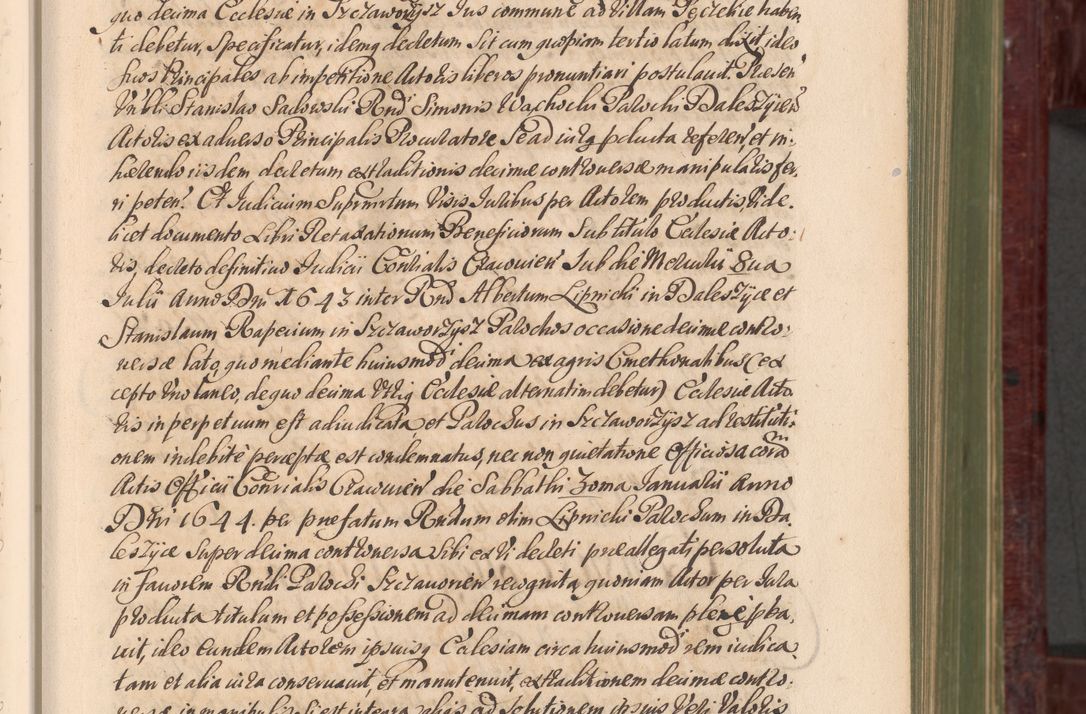 quo decima Ecclesiæ in Szczaworysz Jus commune ad Villam haben
ti debetur, specificatur, idemq decretum sit cum quopiam tertio latum dixit ideo
suos Principales ab impetitione Actoris liberos pronuntiari postulavit. Præsen
Stanislao Sadowski Rnd Simonis Wachochi Parochi Daleszycen
Actoris ex adverso Principalis Procuratore Se ad iurq pducta referen et in-
hærendo iisdem decretum extraditionis decimæ controversæ manipularis fer-
ri peten. Et Judicium Suprmtum Visis Juribus per Actorem productis, vide-
licet documento Libri Retaxationum Beneficiorum Sub titulo Ecclesiæ Acto:
ris, decreto definitivo Judicii Conrialis Cracovien Sub die Mercurii 8va
Julii Anno Dni 1643 inter Rnd Albertum Lipnicki in Daleszyce et
Stanislaum Raperium in Szczaworzysz Parochos occasione decimæ contro:
versæ lato, quo mediante huiusmod decima ex agris Cmethonalibus (ex
cepto uno laneo, de quo decima Utriq Ecclesiæ alternatim debetur) Ecclesiæ Acto-
ris in perpetuum est adiudicata et Parochus in Szczaworzysz ad restituti-
onem indebitè perceptæ est condemnatus, nec non quietatione Officiosa corã
Actis Officii Conrialis Cracovien die Sabbathi 2oma Januarii Anno
Dni 1644. per præfatum Rndum olim Lipnicki Parochum in Da-
leszyce super decima controversa sibi ex Vi decreti præallegati persoluta
in favorem Rndi Parochi Szczavorien recognita, quoniam Actor per Jura
producta titulum et possessionem ad decimam controversam plenè pba-
vit, ideo eundem Actorem ipsiusq Ecclesiam circa huiusmod rem iudica
tam et alia iura conservavit, et manutenuit, extraditionem decimæ contro-
versæ in manipulis ad Solutionem ipsius Veri Valoris